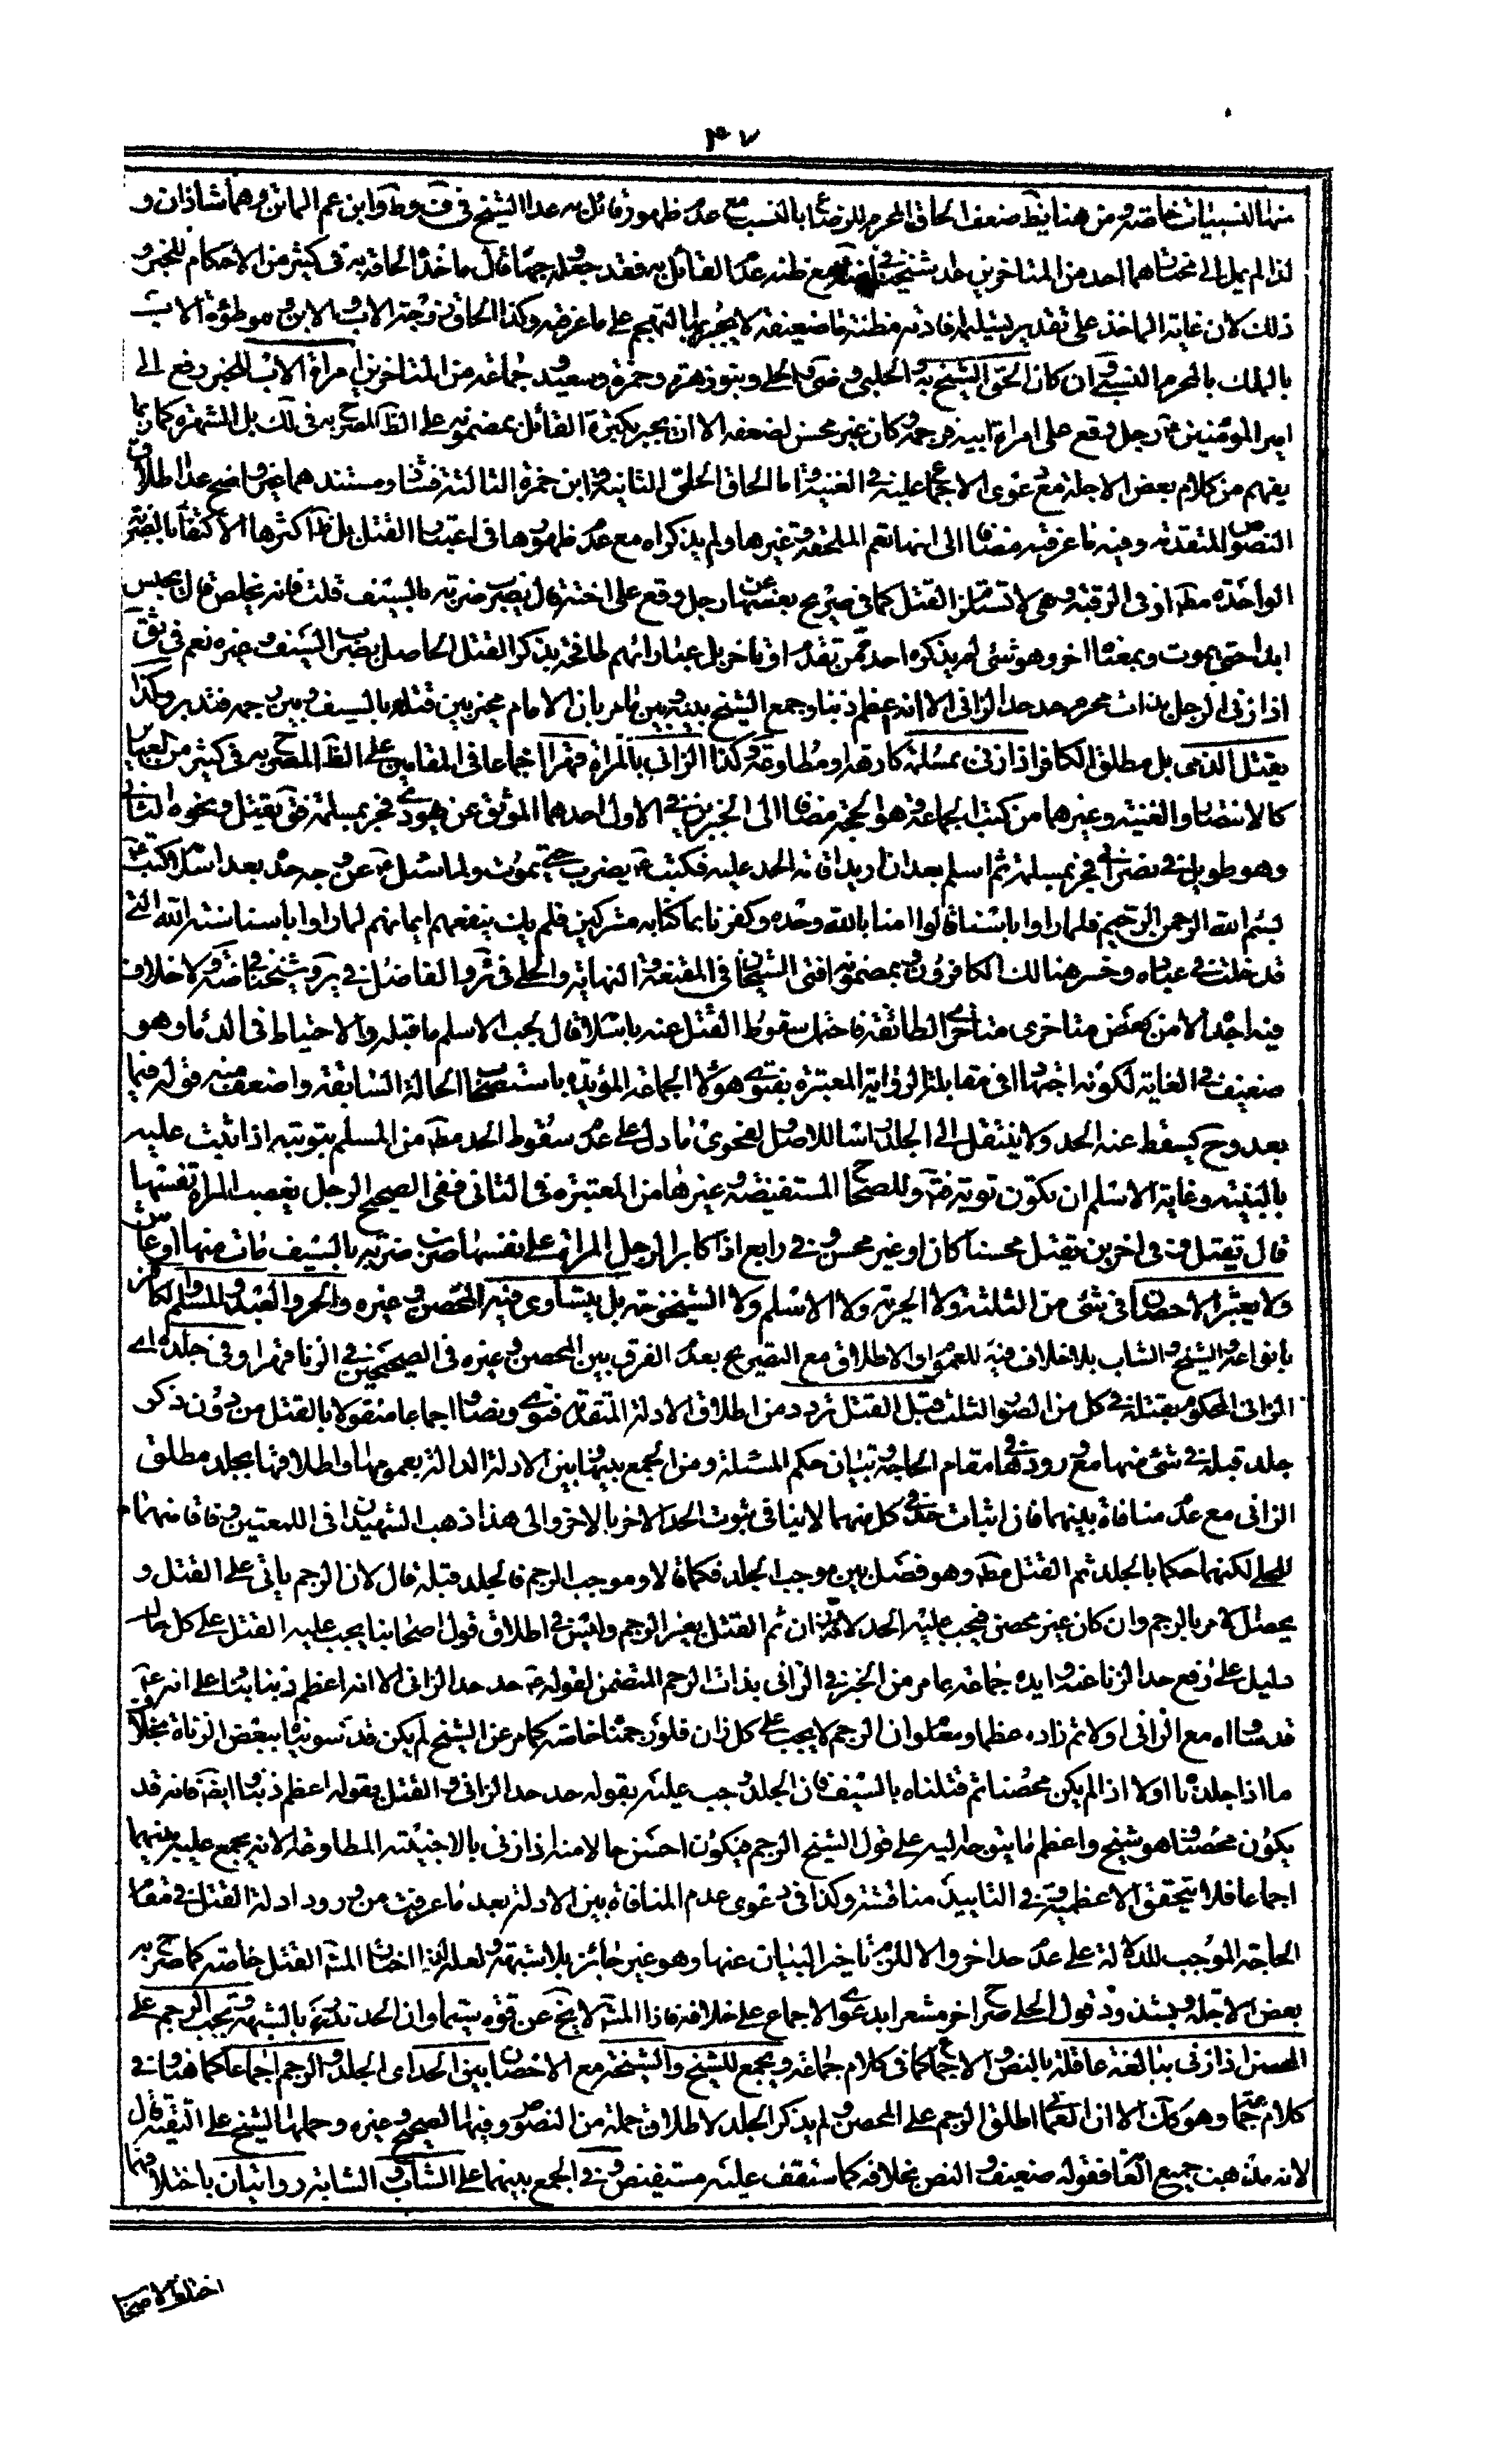 ٤٧
منها النسبيات خاصة ومن هنا يظ ضعف الحاق المحرم للرضاع بالنسب مع عدم ظهور قائل به عدا الشيخ في ف وط وابن عم الماتن وهما شاذان و
لذا لم يمل الى مختارهما احد من المتاخرين عدا شيخنا في مع ظنه عدم القائل به فقد جعله وجها قال ما خذه الحاقه به في كثير من الاحكام للخبر و
ذلك لان غاية الماخذ على تقدير تسليمه افادته مظنة ما ضعيفة لا يجبر بها التهجم على ما عرضه وكذا الحاق زوجة الاب والابن وموطوءة الاب
بالملك بالمحرم النسبي وان كان الحق الشيخ به والحلبي وضى والحلي وبنو زهرة وحمزة وسعيد وجماعة من المتاخرين امراة الاب للخبر رفع الى
امير المؤمنين ع رجل وقع على امراة ابيه فرجمه وكان غير محصن لضعفه الا ان يجبر بكثرة القائل بمضمونه على الظ المصرح به في لك بل الشهرة كما ربما
يفهم من كلام بعض الاجلة مع دعوى الاجماع عليه في الغنية واما الحاق الحلي الثانية وابن حمزة الثالثة فشاذ ومستندهما غير واضح عدا اطلاق
النصوص المتقدمة وفيه ما عرفته مضافا الى انها تعم الملحقة وغيرها ولم يذكراه مع عدم ظهورها في اعتبار القتل بل ظ اكثرها الاكتفاء بالضربة
الواحدة مط او في الرقبة وهي لا تستلزم القتل كما في صريح بعضها عن رجل وقع على اخته قال يضرب ضربة بالسيف قلت فانه يخلص قال يحبس
ابدا حتى يموت وبمعناه اخر وهو شئ لم يذكره احد ممن تقدم او تاخر بل عباراتهم طافحة بذكر القتل الحاصل بضرب السيف وغيره نعم في ثق
اذا زنى الرجل بذات محرم حد حد الزاني الا انه اعظم ذنبا وجمع الشيخ بينه وبين ما مر بان الامام مخير بين قتله بالسيف وبين رجمه فتدبر وكذا
يقتل الذمي بل مطلق الكافر اذا زنى بمسلمة كارهة او مطاوعة وكذا الزاني بالمراة قهرا اجماعا في المقامين على الظ المصرح به في كثير من العبائر
كالانتصار والغنية وغيرهما من كتب الجماعة وهو الحجة مضافا الى الخبرين في الاول احدهما الموثق عن يهودي فجر بمسلمة فق يقتل ونحوه الثاني
وهو طويل في نصراني فجر بمسلمة ثم اسلم بعد ان اريد اقامة الحد عليه فكتب ع يضرب حتى يموت ولما سئل ع عن وجه حده بعد اسلامه كتب ع
بسم الله الرحمن الرحيم فلما راوا باسنا قالوا امنا بالله وحده وكفرنا بما كنا به مشركين فلم يك ينفعهم ايمانهم لما راوا باسنا سنة الله التي
قد خلت في عباده وخسر هنالك الكافرون وبمضمونه افتى الشيخان في المقنعة والنهاية والحلي في ئر والفاضل في ير وشيخنا في ضة ولا خلاف
فيه اجده الا من بعض متاخرى متاخري الطائفة فاحتمل سقوط القتل عنه باسلامه قال يجب الاسلم ما قبله والاحتياط في الدماء وهو
ضعيف في الغاية لكونه اجتهادا في مقابلة الرواية المعتبرة بفتوى هؤلاء الجماعة المؤيدة باستصحاب الحالة السابقة واضعف منه قوله فيما
بعد وح يسقط عنه الحد ولا ينتقل الى الجلد اشاللاصل لفحوى ما دل على عدم سقوط الحد مط من المسلم بتوبته اذا ثبت عليه
بالبينة وغاية الاسلم ان تكون توبة فت وللصحاح المستفيضة وغيرها من المعتبرة في الثاني ففي الصحيح الرجل يغصب المراة نفسها
قال يقتل وفي اخرين يقتل محصنا كان او غير محصن وفي رابع اذا كابر الرجل المراة على نفسها ضرب ضربة بالسيف مات منها او عاش
ولا يعتبر الاحصان في شئ من الثلثة ولا الحرية ولا الاسلم ولا الشيخوخة بل يتساوى فيه المحصن وغيره والحر والعبد والمسلم والكافر
بانواعه والشيخ والشاب بلا خلاف فيه للعموم او الاطلاق مع التصريح بعدم الفرق بين المحصن وغيره في الصحيحين في الزنا قهرا وفي جلده اي
الزاني المحكوم بقتله في كل من الصور الثلث قبل القتل تردد من اطلاق الادلة المتقدمة فتوى ونصا اجماعا منقولا بالقتل من دون ذكر
جلد قبله في شئ منها مع ورودها في مقام الحاجة وتبيان حكم المسئلة ومن الجمع بينها وبين الادلة الدالة بعمومها او اطلاقها بجلد مطلق
الزاني مع عدم منافاة بينهما فان اثبات حد في كل منهما لا ينافي ثبوت الحد الاخر بالاخر والى هذا ذهب الشهيدان في اللمعتين وفاقا منهما
للحلي لكنهما حكما بالجلد ثم القتل مط وهو فصل بين موجب الجلد فكما قالا وموجب الرجم فالجلد قبله قال لان الرجم ياتي على القتل و
يحصل الامر بالرجم وان كان غير محصن فيجب عليه الحد لانه زان ثم القتل بغير الرجم وليس في اطلاق قول اصحابنا يجب عليه القتل على كل حال
دليل على رفع حد الزنا عنه وايده جماعة بما مر من الخبر في الزاني بذات الرحم المتضمن لقوله ع حد حد الزاني الا انه اعظم ذنبا بناء على انه ع
قد ساواه مع الزاني اولا ثم زاده عظما ومعلوم ان الرجم لا يجب على كل زان فلو رجمناه خاصة كما مر عن الشيخ لم يكن قد تسوينا ببعض الزناة بخلاف
ما اذا جلدناه اولا اذا لم يكن محصنا ثم قتلناه بالسيف فان الجلد وجب عليه بقوله حد حد الزاني والقتل بقوله اعظم ذنبا وايضا فانه قد
يكون محصنا وهو شيخ واعظم ما يتوجه اليه على قول الشيخ الرجم فيكون احسن حالا منه اذا زنى بالاجنبية المطاوعة لانه يجمع عليه بينهما
اجماعا فلا يتحقق الاعظمية وفي التاييد مناقشة وكذا في دعوى عدم المنافاة بين الادلة بعد ما عرفت من ورود ادلة القتل في مقام
الحاجة الموجب للدلالة على عدم حد اخر والا للزم تاخير البيان عنها وهو غير جائز بلا شبهة ولعله لذا اختار المش القتل خاصة كما صرح به
بعض الاجلة وبشذوذ قول الحلي صرح اخر مشعرا بدعوى الاجماع على خلافه فاذا المش لا يخ عن قوة سيما وان الحد تدرء بالشبهة ويجب الرجم على
المحصن اذا زنى ببالغة عاقلة بالنص والاجماع كما في كلام جماعة ويجمع للشيخ والشيخة مع الاحصان بين الحد اي الجلد والرجم اجماعا كما هنا وفي
كلام جماعة وهو كك الا ان العماني اطلق الرجم على المحصن ولم يذكر الجلد لاطلاق جملة من النصوص وفيها الصحيح وغيره وحملها الشيخ على التقية قال
لانه مذهب جميع العامة فقوله ضعيف والنص بخلافه كما ستقف عليه مستفيض وفي الجمع بينهما على الشاب والشابة روايتان باختلافهما
اختلف الاصحاب